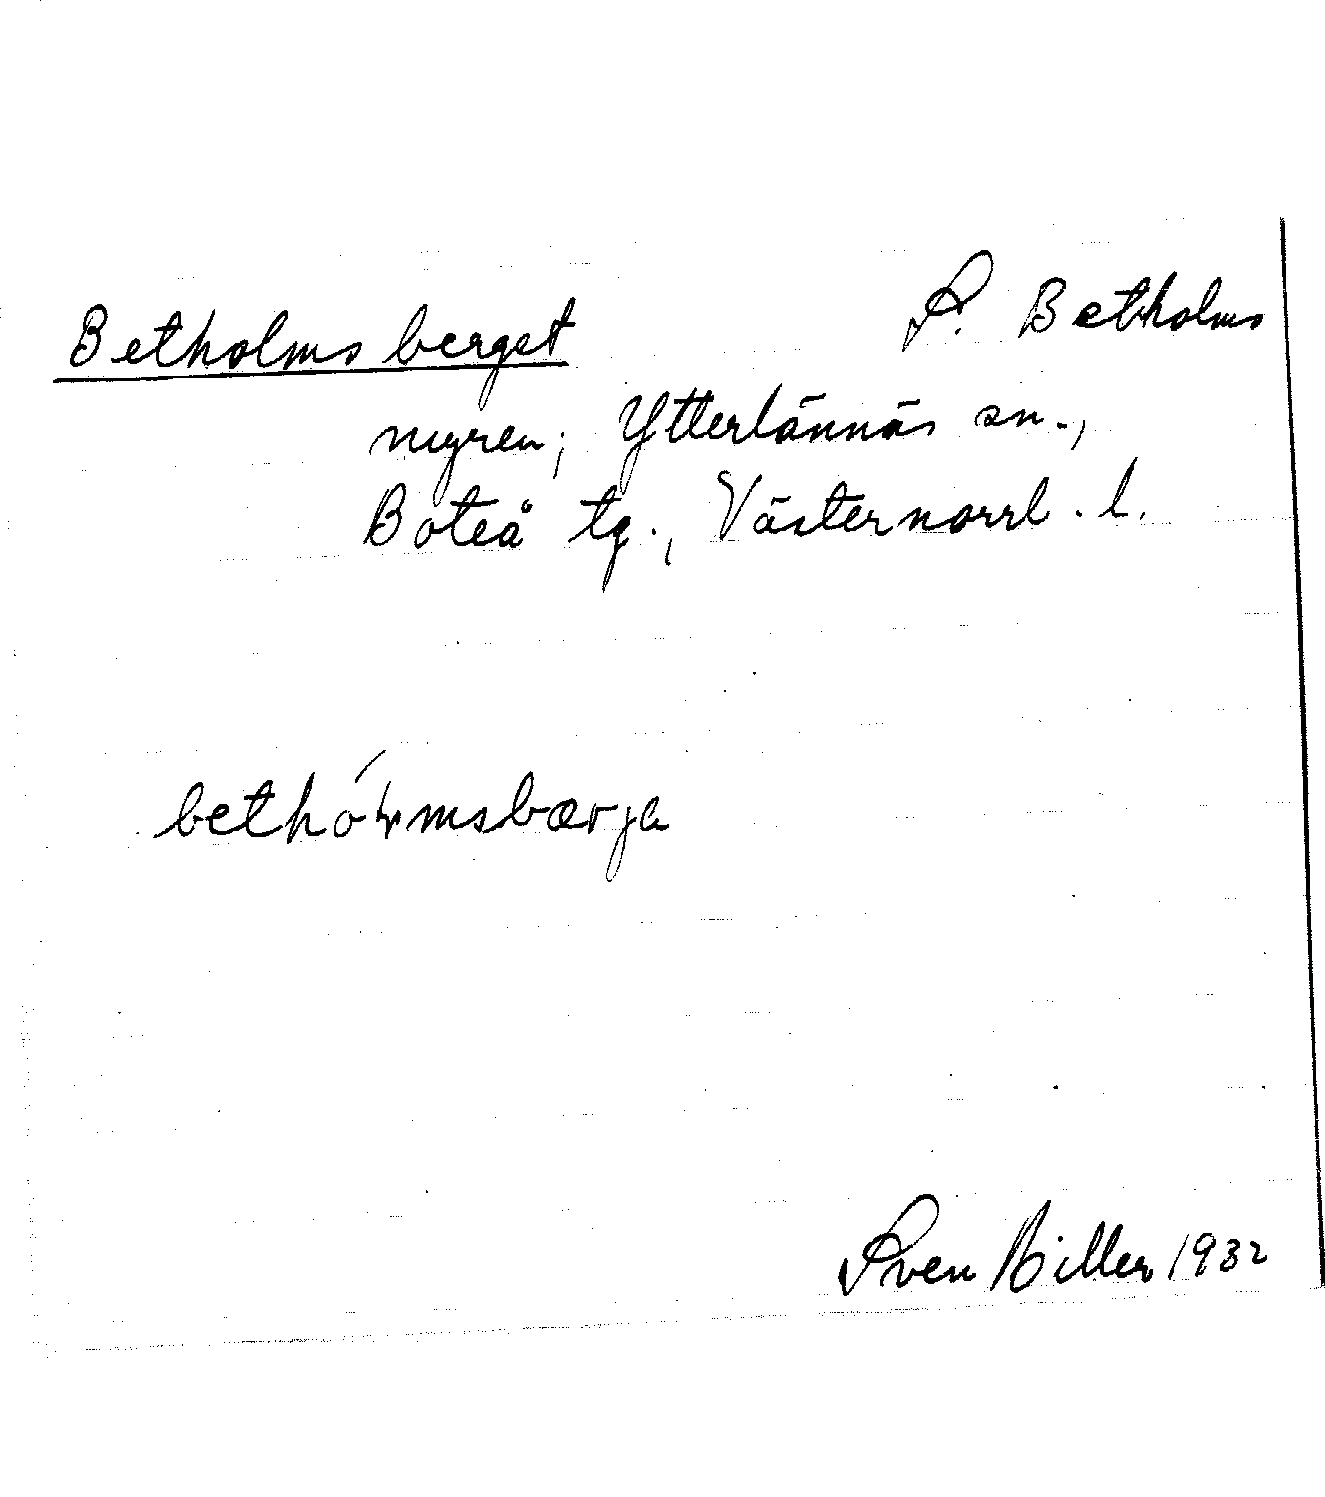 Betholmsberget S. Betholms
myren; Ytterlännäs sn.,
Boteå tg., Västernorrl. l.
Sven Hiller 1932